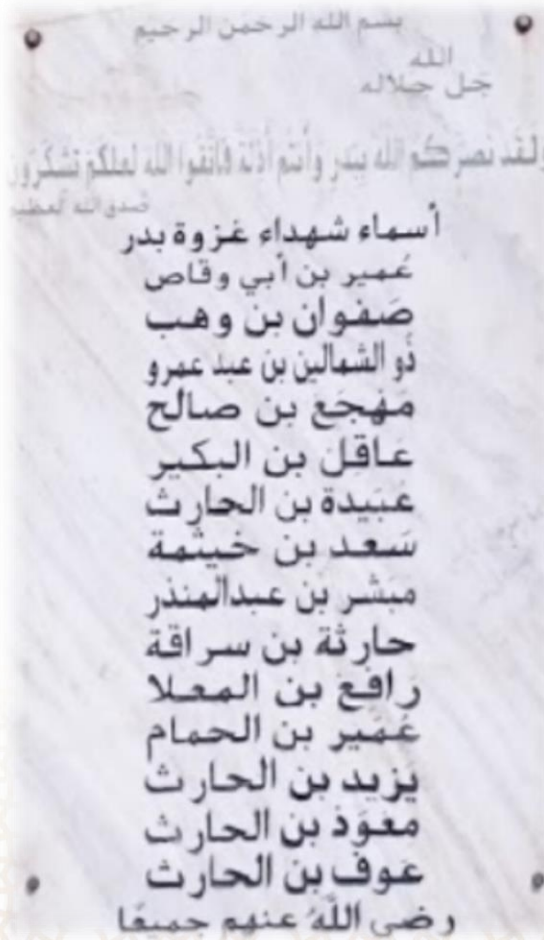 بسم الله الرحمن الرحيم
الله
جل جلاله
ولقد نصركم الله ببدر وأنتم أذلة فاتقوا الله لعلكم تشكرون
صدق الله العظيم
أسماء شهداء غزوة بدر
عُمير بن أبي وقاص
صَفوان بن وهب
ذو الشمالين بن عبد عمرو
مَهْجَع بن صالح
عاقل بن البكير
عبيدة بن الحارث
سَعد بن خيثمة
مبشر بن عبدالمنذر
حارثة بن سراقة
رافع بن المعلا
عُمَير بن الحمام
يزيد بن الحارث
معوذ بن الحارث
عوف بن الحارث
رضي اللّٰه عنهم جميعًا